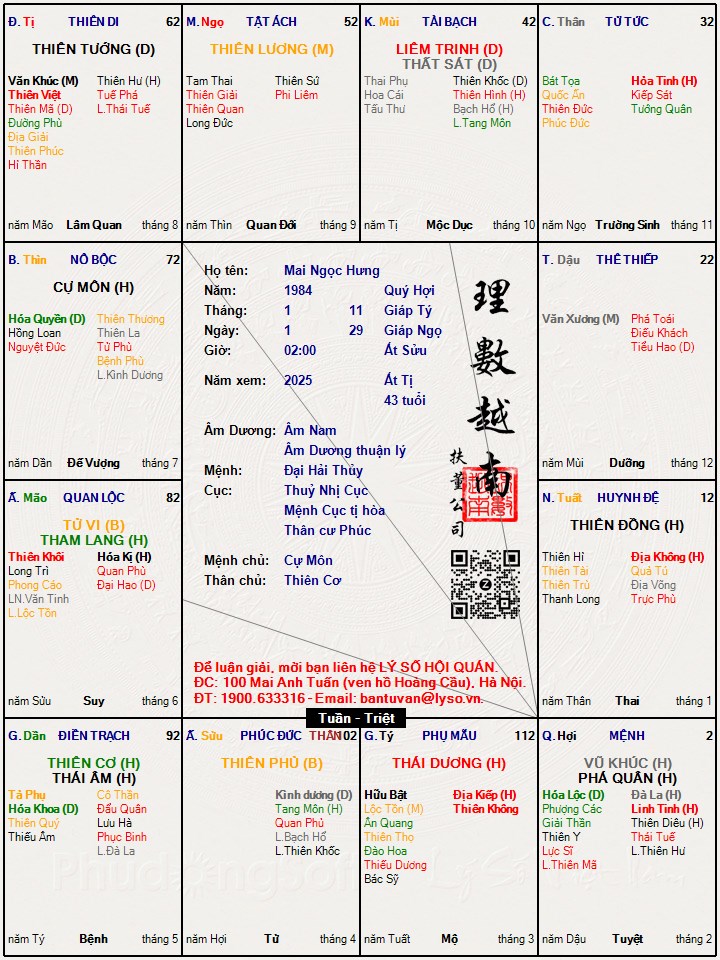 Đ. Tị THIÊN DI 62
THIÊN TƯỚNG (D)
Văn Khúc (M) Thiên Hư (H)
Thiên Việt Tuế Phá
Thiên Mã (D) L.Thái Tuế
Đường Phù
Địa Giải
Thiên Phúc
Hỉ Thần
năm Mão Lâm Quan tháng 8
M. Ngọ TẬT ÁCH 52
THIÊN LƯƠNG (M)
Tam Thai Thiên Sứ
Thiên Giải Phi Liêm
Thiên Quan
Long Đức
năm Thìn Quan Đới tháng 9
K. Mùi TÀI BẠCH 42
LIÊM TRINH (D)
THẤT SÁT (D)
Thai Phụ Thiên Khốc (D)
Hoa Cái Thiên Hình (H)
Tấu Thư Bạch Hổ (H)
L.Tang Môn
năm Tị Mộc Dục tháng 10
C. Thân TỬ TỨC 32
Bát Tọa Hỏa Tinh (H)
Quốc Ấn Kiếp Sát
Thiên Đức Tướng Quân
Phúc Đức
năm Ngọ Trường Sinh tháng 11
B. Thìn NÔ BỘC 72
CỰ MÔN (H)
Hóa Quyền (D) Thiên Thương
Hồng Loan Thiên La
Nguyệt Đức Tử Phù
Bệnh Phù
L.Kình Dương
năm Dần Đế Vượng tháng 7
Họ tên: Mai Ngọc Hưng
Năm: 1984 Quý Hợi
Tháng: 1 11 Giáp Tý
Ngày: 1 29 Giáp Ngọ
Giờ: 02:00 Ất Sửu
Năm xem: 2025 Ất Tị
43 tuổi
Âm Dương: Âm Nam
Âm Dương thuận lý
Mệnh: Đại Hải Thủy
Cục: Thuỷ Nhị Cục
Mệnh Cục tị hòa
Thân cư Phúc
Mệnh chủ: Cự Môn
Thân chủ: Thiên Cơ
理數越南
扶董公司
Để luận giải, mời bạn liên hệ LÝ SỐ HỘI QUÁN.
ĐC: 100 Mai Anh Tuấn (ven hồ Hoàng Cầu), Hà Nội.
ĐT: 1900.633316 - Email: bantuvan@lyso.vn.
T. Dậu THÊ THIẾP 22
Văn Xương (M) Phá Toái
Điếu Khách
Tiểu Hao (D)
năm Mùi Dưỡng tháng 12
Ấ. Mão QUAN LỘC 82
TỬ VI (B)
THAM LANG (H)
Thiên Khôi Hóa Kị (H)
Long Trì Quan Phù
Phong Cáo Đại Hao (D)
LN.Văn Tinh
L.Lộc Tồn
năm Sửu Suy tháng 6
N. Tuất HUYNH ĐỆ 12
THIÊN ĐỒNG (H)
Thiên Hỉ Địa Không (H)
Thiên Tài Quả Tú
Thiên Trù Địa Võng
Thanh Long Trực Phù
năm Thân Thai tháng 1
Tuần - Triệt
G. Dần ĐIỀN TRẠCH 92
THIÊN CƠ (H)
THÁI ÂM (H)
Tả Phụ Cô Thần
Hóa Khoa (D) Đẩu Quân
Thiên Quý Lưu Hà
Thiếu Âm Phục Binh
L.Đà La
năm Tý Bệnh tháng 5
Ấ. Sửu PHÚC ĐỨC THÂN 102
THIÊN PHỦ (B)
Kình dương (D)
Tang Môn (H)
Quan Phủ
L.Bạch Hổ
L.Thiên Khốc
năm Hợi Tử tháng 4
G. Tý PHỤ MẪU 112
THÁI DƯƠNG (H)
Hữu Bật Địa Kiếp (H)
Lộc Tồn (M) Thiên Không
Ân Quang
Thiên Thọ
Đào Hoa
Thiếu Dương
Bác Sỹ
năm Tuất Mộ tháng 3
Q. Hợi MỆNH 2
VŨ KHÚC (H)
PHÁ QUÂN (H)
Hóa Lộc (D) Đà La (H)
Phượng Các Linh Tinh (H)
Giải Thần Thiên Diêu (H)
Thiên Y Thái Tuế
Lực Sĩ L.Thiên Hư
L.Thiên Mã
năm Dậu Tuyệt tháng 2